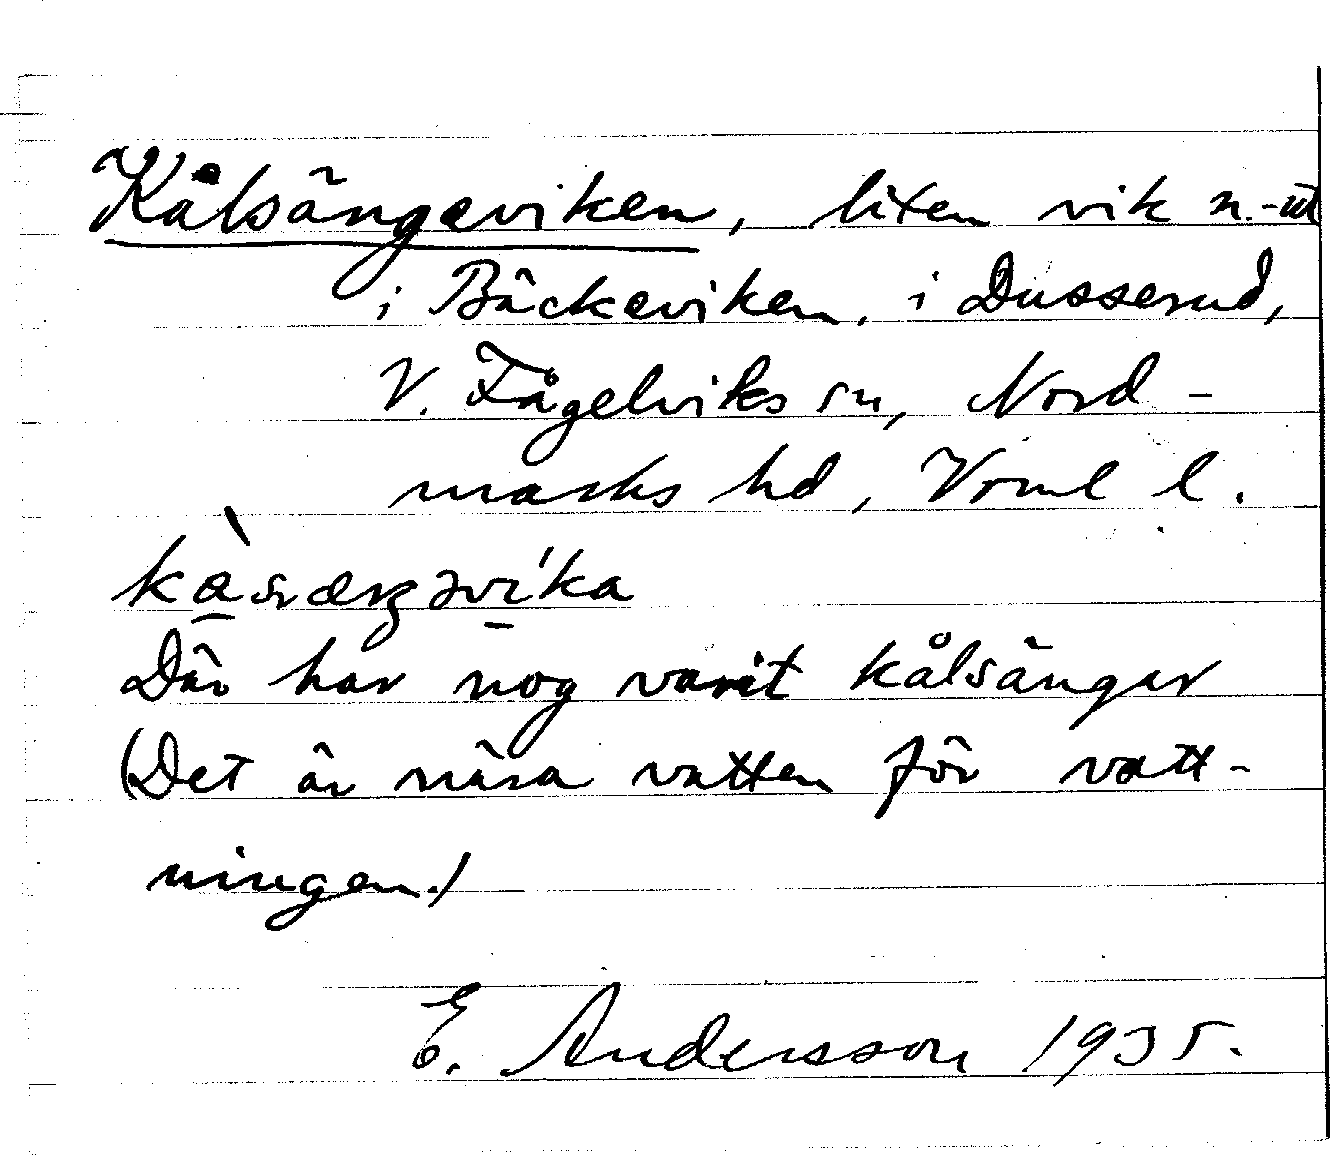 Kålsängeviken, liten vik n.-ut
i Bäckeviken, i Dusserud,
V. Fågelviks sn, Nord-
marks hd, Vrml l.
Där har nog varit kålsängar
(Det är nära vatten för vatt-
ningen.)
E. Andersson 1935.